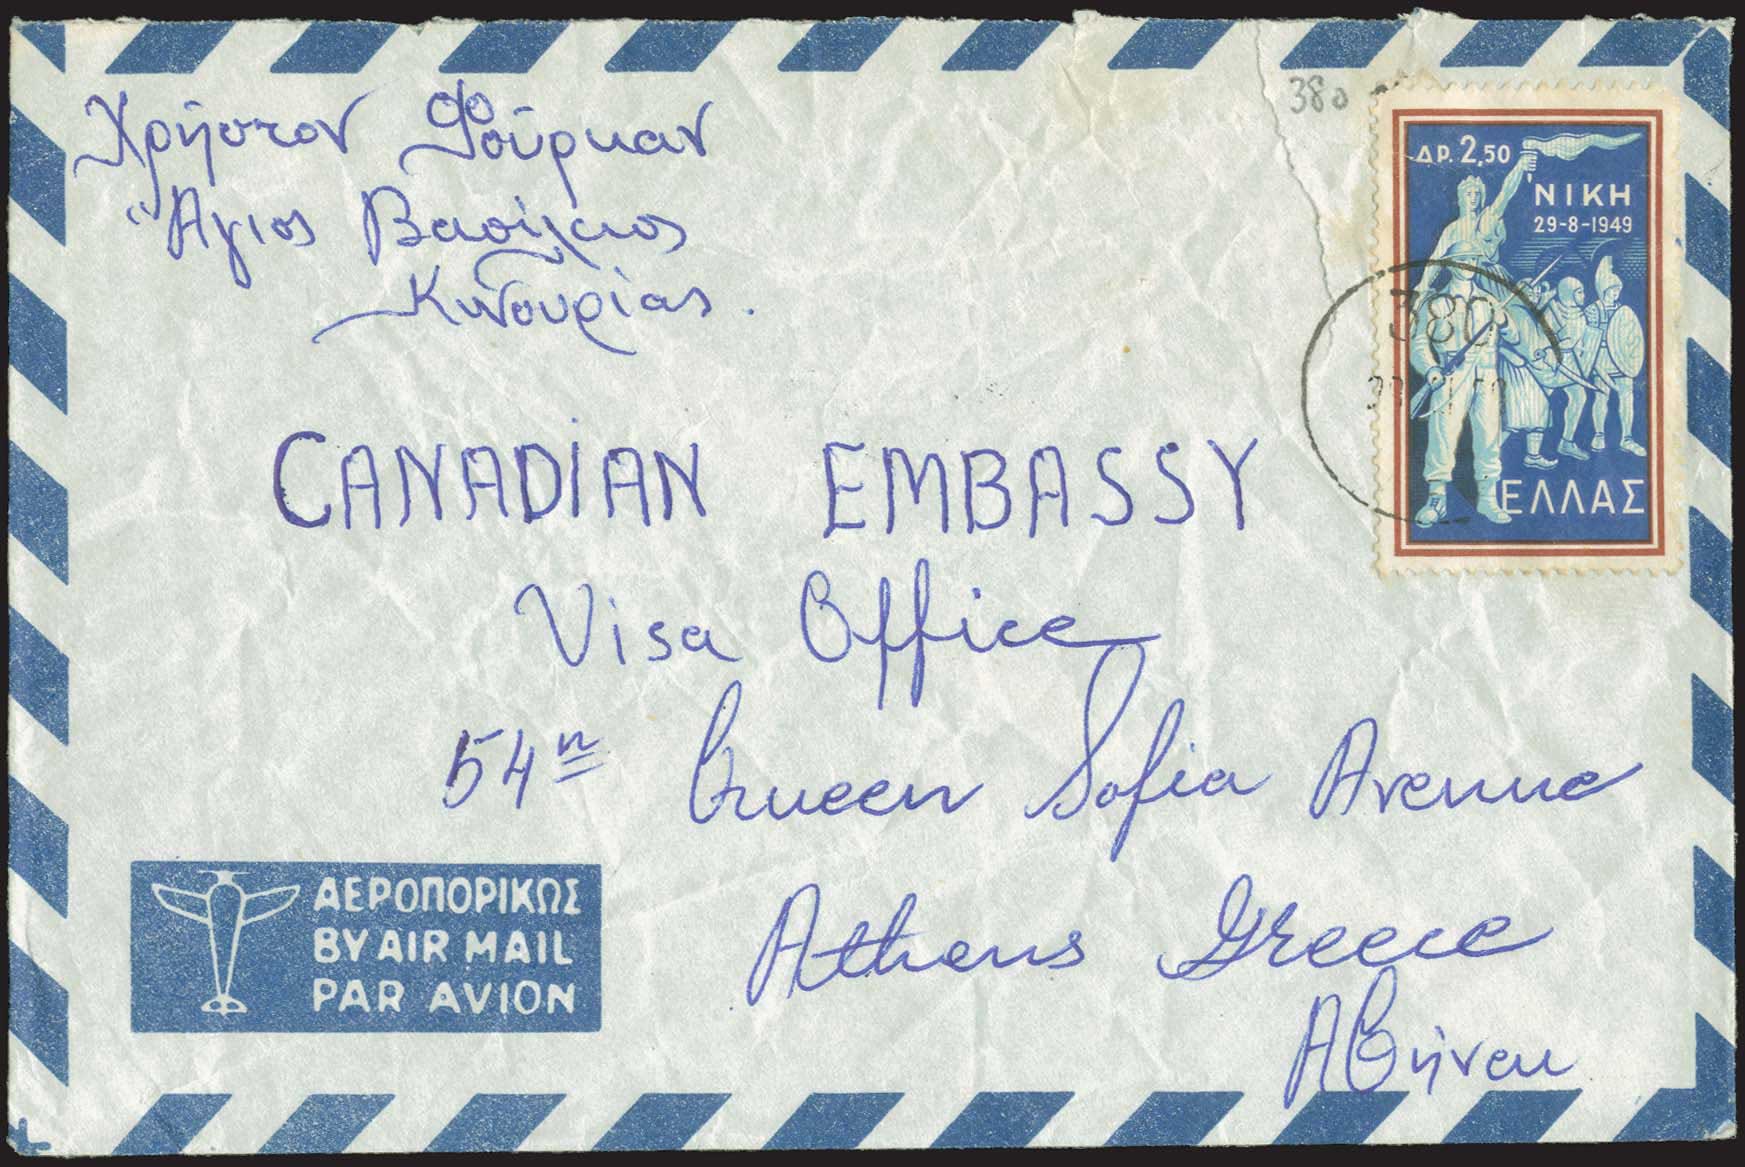 Χρήστον Φούρκαν
Άγιος Βασίλειος
Κυνουρίας.
380
ΔΡ. 2,50
ΝΙΚΗ
29-8-1949
380
ΕΛΛΑΣ
CANADIAN EMBASSY
Visa Office
54n Queen Sofia Avenue
Athens Greece
Αθήναι
ΑΕΡΟΠΟΡΙΚΩΣ
BY AIR MAIL
PAR AVION